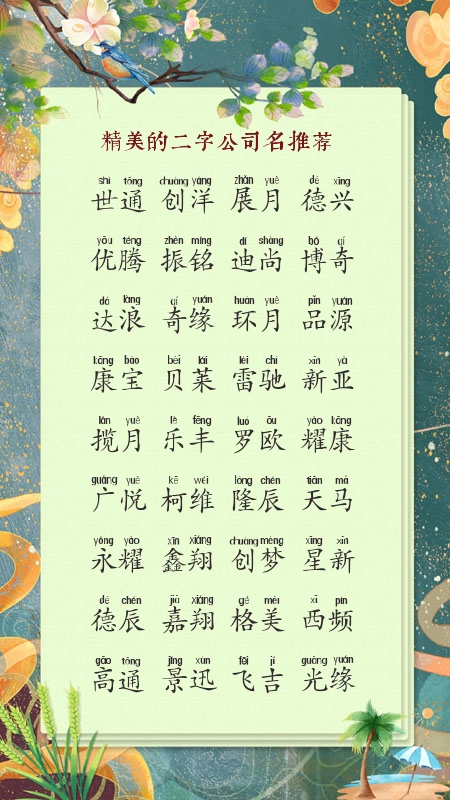 精美的二字公司名推荐
shì tōng chuàng yáng zhǎn yuè dé xīng
世通 创洋 展月 德兴
yōu téng zhèn míng dí shàng bó qí
优腾 振铭 迪尚 博奇
dá làng qí yuán huán yuè pǐn yuán
达浪 奇缘 环月 品源
kāng bǎo bèi lái léi chí xīn yà
康宝 贝莱 雷驰 新亚
lǎn yuè lè fēng luó ōu yào kāng
揽月 乐丰 罗欧 耀康
guǎng yuè kē wéi lóng chén tiān mǎ
广悦 柯维 隆辰 天马
yǒng yào xīn xiáng chuàng mèng xīng xīn
永耀 鑫翔 创梦 星新
dé chén jiā xiáng gé měi xī pín
德辰 嘉翔 格美 西频
gāo tōng jǐng xùn fēi jí guāng yuán
高通 景迅 飞吉 光缘